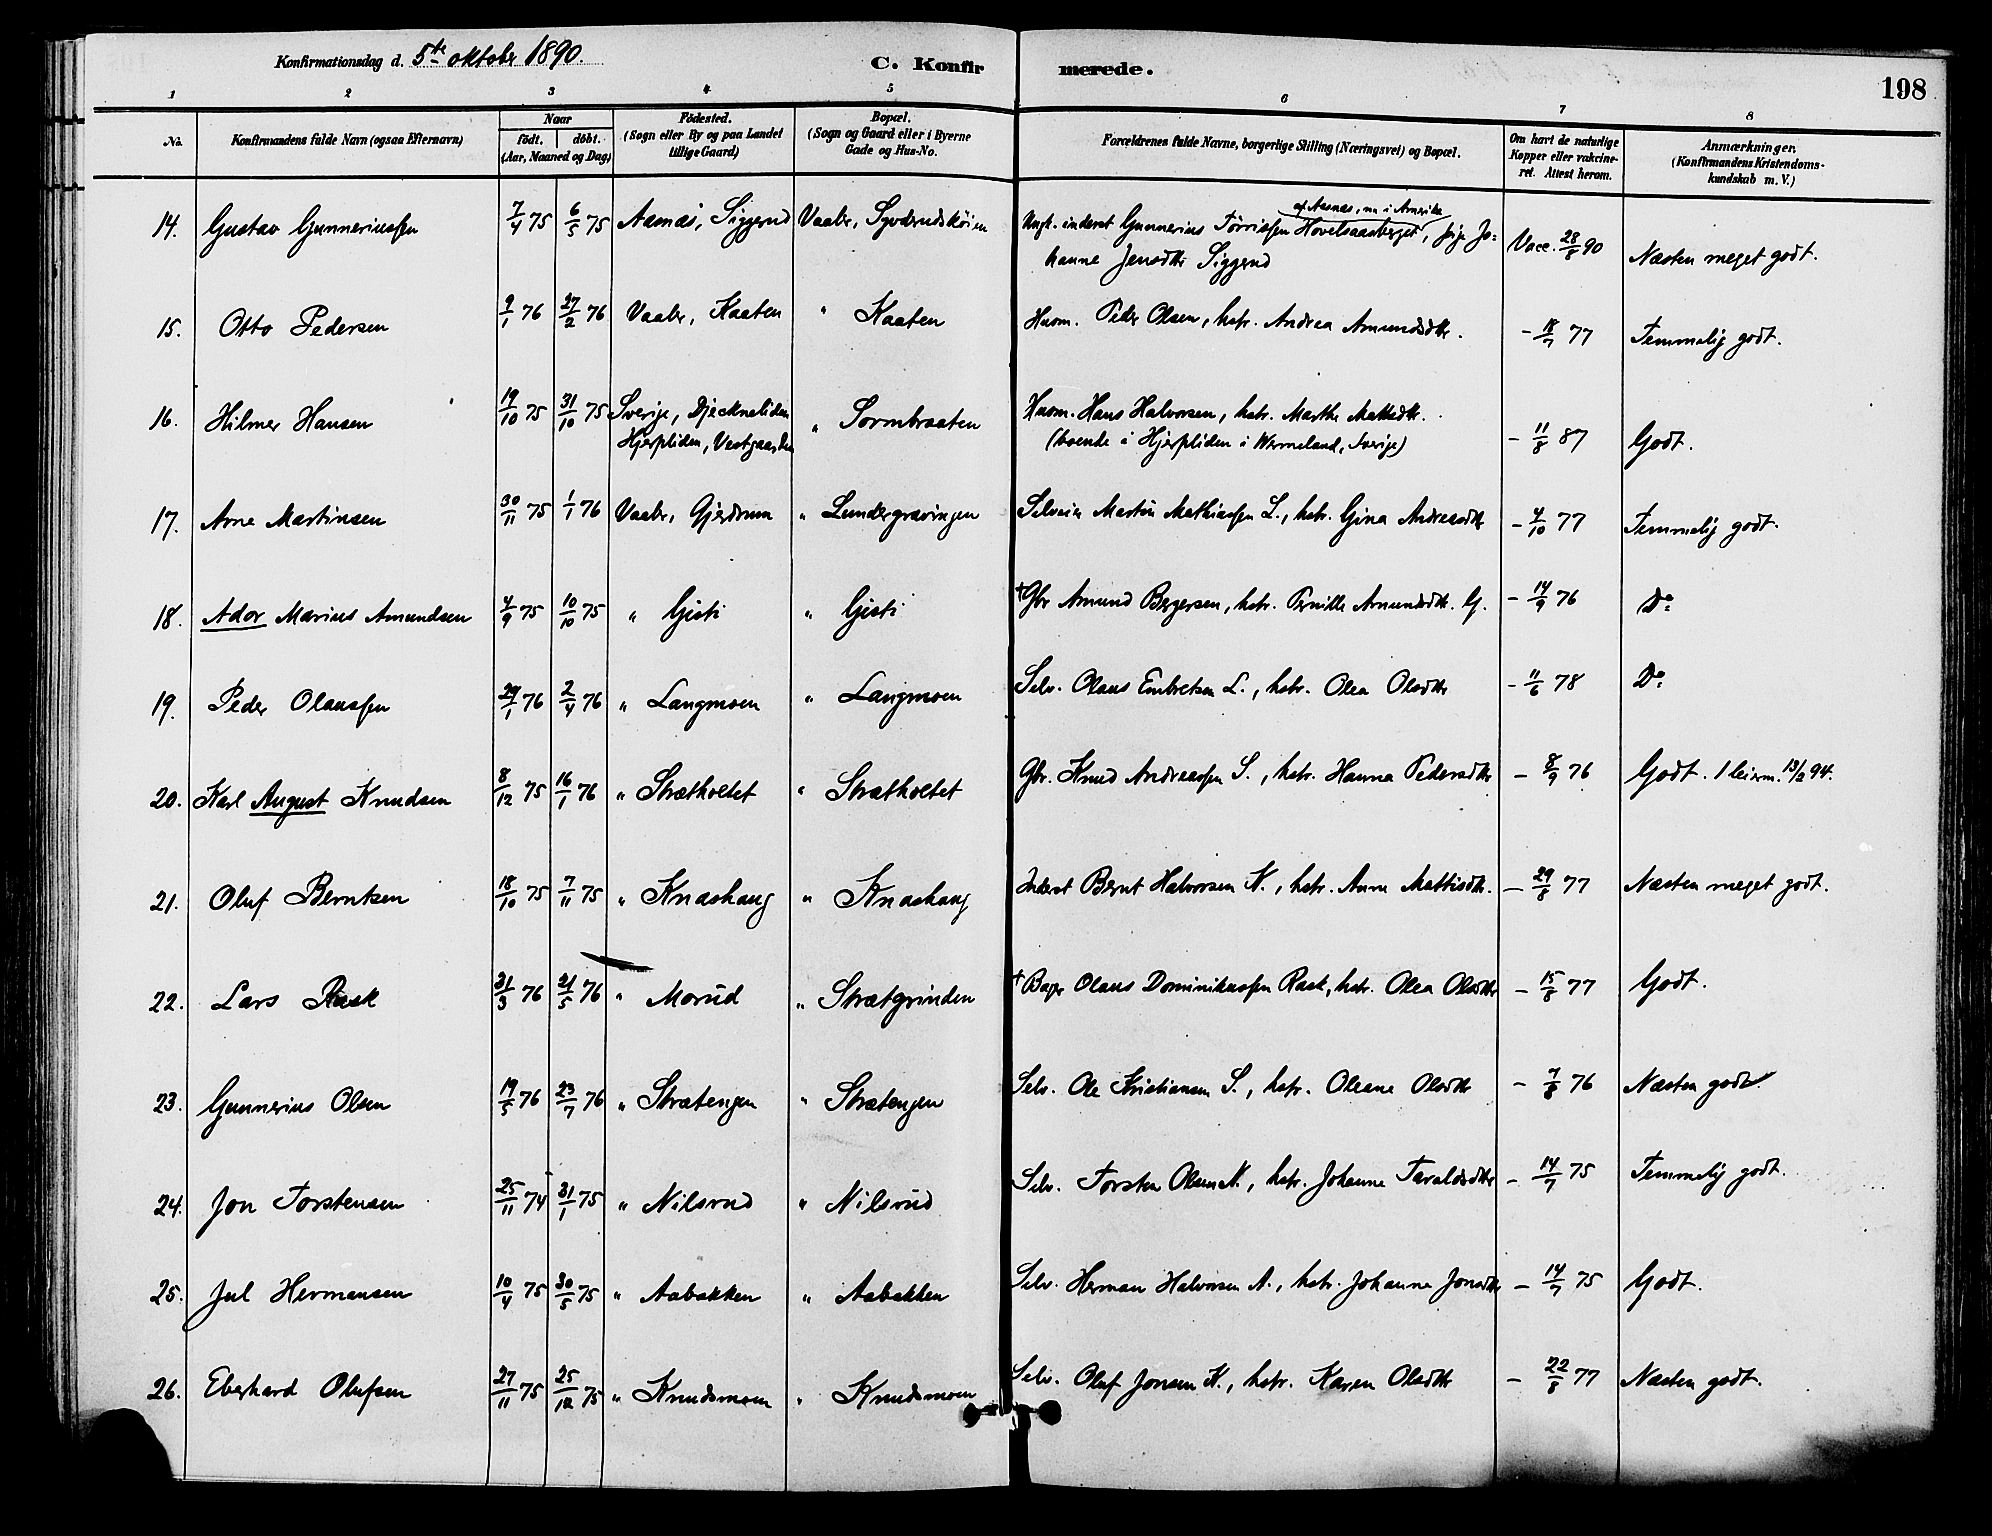 Konfirmationsdag d. 5te oktober 1890.
C. Konfirmerede.
198
1 2 3 4 5 6 7 8
No. | Konfirmandens fulde Navn (ogsaa Efternavn) | Naar födt. döbt. (Aar, Maaned og Dag) | Födested. (Sogn eller By og paa Landet tillige Gaard) | Bopæl. (Sogn og Gaard eller i Byerne Gade og Hus-No. | Forældrenes fulde Navne, borgerlige Stilling (Næringsvei) og Bopæl. | Om havt de naturlige Kopper eller vakcineret. Attest herom. | Anmærkninger. (Konfirmandens Kristendomskundskab m. V.)
14. Gustav Gunneriussen | 7/4 75 | 6/5 75 | Aasnes, Siggerud | Vaaler, | Ungk. inderst Gunnerius Tørrisen Hovelsaasberget, af Aasnes, nu i Amerika, pige Johanne Jensdtr Siggerud | Vacc. 28/8 90 | Næsten meget godt.
15. Otto Pedersen | 9/1 76 | 27/2 76 | Vaaler, Kaaten | " Kaaten | Husm. Peder Olsen, hstr. Andrea Amundsdtr. | - 18/7 77 | Temmelig godt.
16. Hilmer Hansen | 19/10 75 | 31/10 75 | Sverige, Djeckneliden Hjerpliden, | " Sormbraaten | Husm. Hans Halvorsen, hstr. Marthe Mattisdtr. (boende i Hjerpliden i Wermeland, Sverige) | - 11/8 87 | Godt.
17. Arne Martinsen | 30/11 75 | 1/1 76 | Vaaler, Gjerdrum | " Lundergravingen | Selveier Martin Mathiassen L., hstr. Gina Andreasdtr | - 4/10 77 | Temmelig godt.
18. Ador Marius Amundsen | 4/9 75 | 10/10 75 | " Gjsti | " Gjsti | † Gbr Amund Bergersen, hstr. Pernille Amundsdtr. G. | - 14/9 76 | Do
19. Peder Olaussen | 29/1 76 | 2/4 76 | " Langmoen | " Langmoen | Selv. Olaus Embretsen L., hstr. Olea Olsdtr | - 11/6 78 | Do
20. Karl August Knudsen | 8/12 75 | 16/1 76 | " Strætholtet | " Strætholtet | Gbr. Knud Andreassen S., hstr. Hanna Pedersdtr | - 8/9 76 | Godt. 1 leierm. 13/2 94.
21. Oluf Berntsen | 18/10 75 | 7/11 75 | " Knashaug | " Knashaug | Inderst Bernt Halvorsen K., hstr. Anne Mattisdtr. | - 29/8 77 | Næsten meget godt.
22. Lars Rask | 31/3 76 | 21/5 76 | " Morud | " Strætgrinden | † Bager Olaus Dominikussen Rask, hstr. Olea Olsdtr | - 15/8 77 | Godt.
23. Gunnerius Olsen | 19/5 76 | 23/7 76 | " Strætengen | " Strætengen | Selv. Ole Kristiansen S., hstr. Oleane Olsdtr | - 7/8 76 | Næsten godt.
24. Jon Torstensen | 25/11 74 | 31/1 75 | " Nilsrud | " Nilsrud | Selv. Torsten Olsen N., hstr. Johanne Taraldsdtr | - 14/7 75 | Temmelig godt.
25. Jul Hermansen | 10/4 75 | 30/5 75 | " Aabakken | " Aabakken | Selv. Herman Halvorsen A., hstr. Johanne Jonsdtr | - 14/7 75 | Godt.
26. Eberhard Olufsen | 27/11 75 | 25/12 75 | " Knudsmoen | " Knudsmoen | Selv. Oluf Jonsen K., hstr. Karen Olsdtr | - 22/8 77 | Næsten godt.